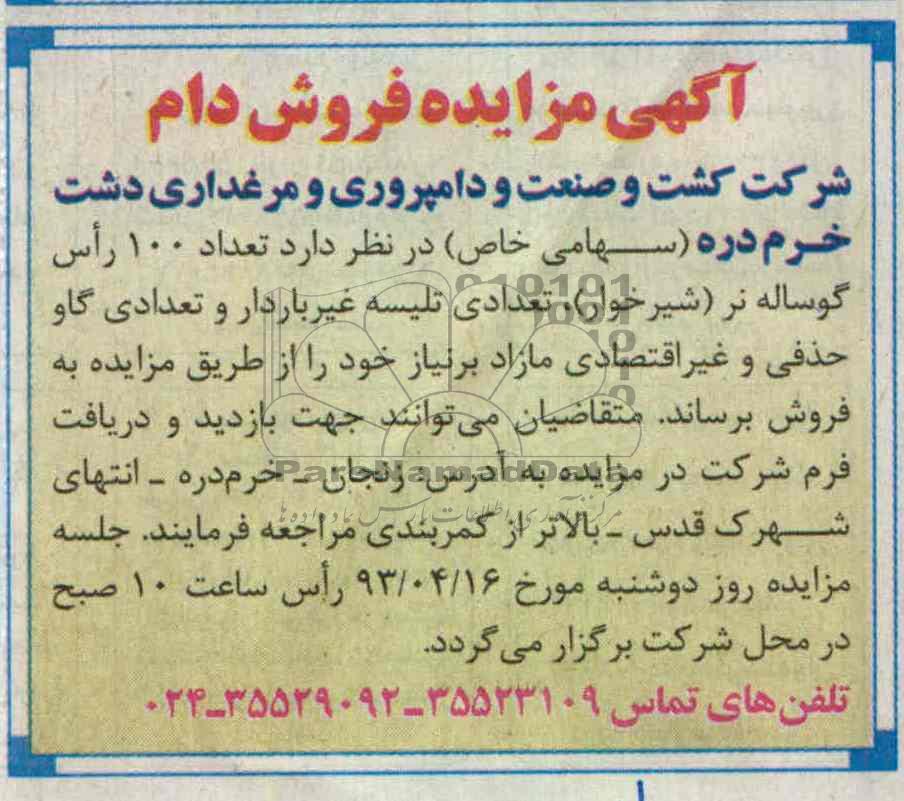 آگهی مزایده فروش دام
شرکت کشت و صنعت و دامپروری و مرغداری دشت
خرم دره (سهامی خاص) در نظر دارد تعداد ۱۰۰ رأس
گوساله نر (شیرخوار)، تعدادی تلیسه غیرباردار و تعدادی گاو
حذفی و غیراقتصادی مازاد برنیاز خود را از طریق مزایده به
فروش برساند. متقاضیان می‌توانند جهت بازدید و دریافت
فرم شرکت در مزایده به آدرس: زنجان ـ خرم‌دره ـ انتهای
شهرک قدس ـ بالاتر از کمربندی مراجعه فرمایند. جلسه
مزایده روز دوشنبه مورخ ۹۳/۰۴/۱۶ رأس ساعت ۱۰ صبح
در محل شرکت برگزار می‌گردد.
تلفن‌های تماس ۳۵۵۲۳۱۰۹ـ۳۵۵۲۹۰۹۲ـ۰۲۴
ParsNamadData